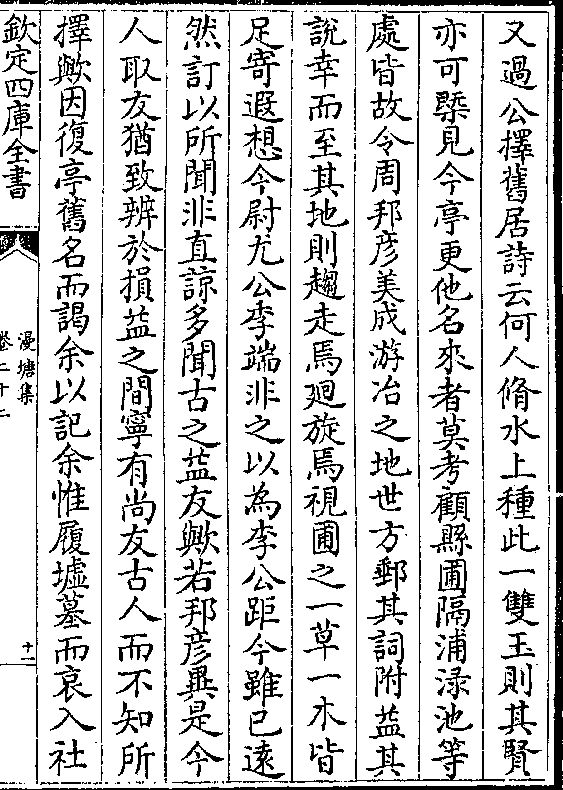 又過公擇舊居詩云何人脩水上種此一雙玉則其賢
亦可槩見今亭更他名來者莫考顧縣圃隔浦渌池等
處皆故令周邦彦美成游冶之地世方郵其詞附益其
說幸而至其地則趨走焉廻旋焉視圃之一草一木皆
足寄遐想今尉尤公李端非之以為李公距今雖已遠
然訂以所聞非直諒多聞古之益友歟若邦彦異是今
人取友猶致辨於損益之間寧有尚友古人而不知所
擇歟因復亭舊名而謁余以記余惟履墟墓而哀入社
欽定四庫全書
漫塘集
卷二十二
十一